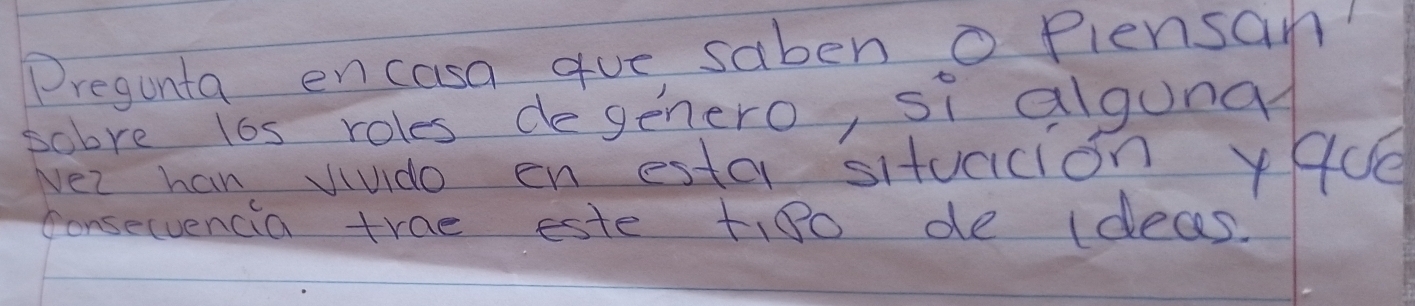 Pregunta en casa que saben o piensan
sobre los roles de género, si alguna
vez han vivido en esta situación y que
consecuencia trae este tipo de ideas.